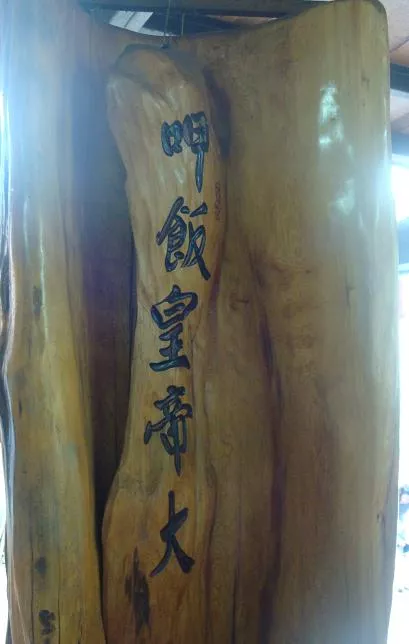 呷飯皇帝大